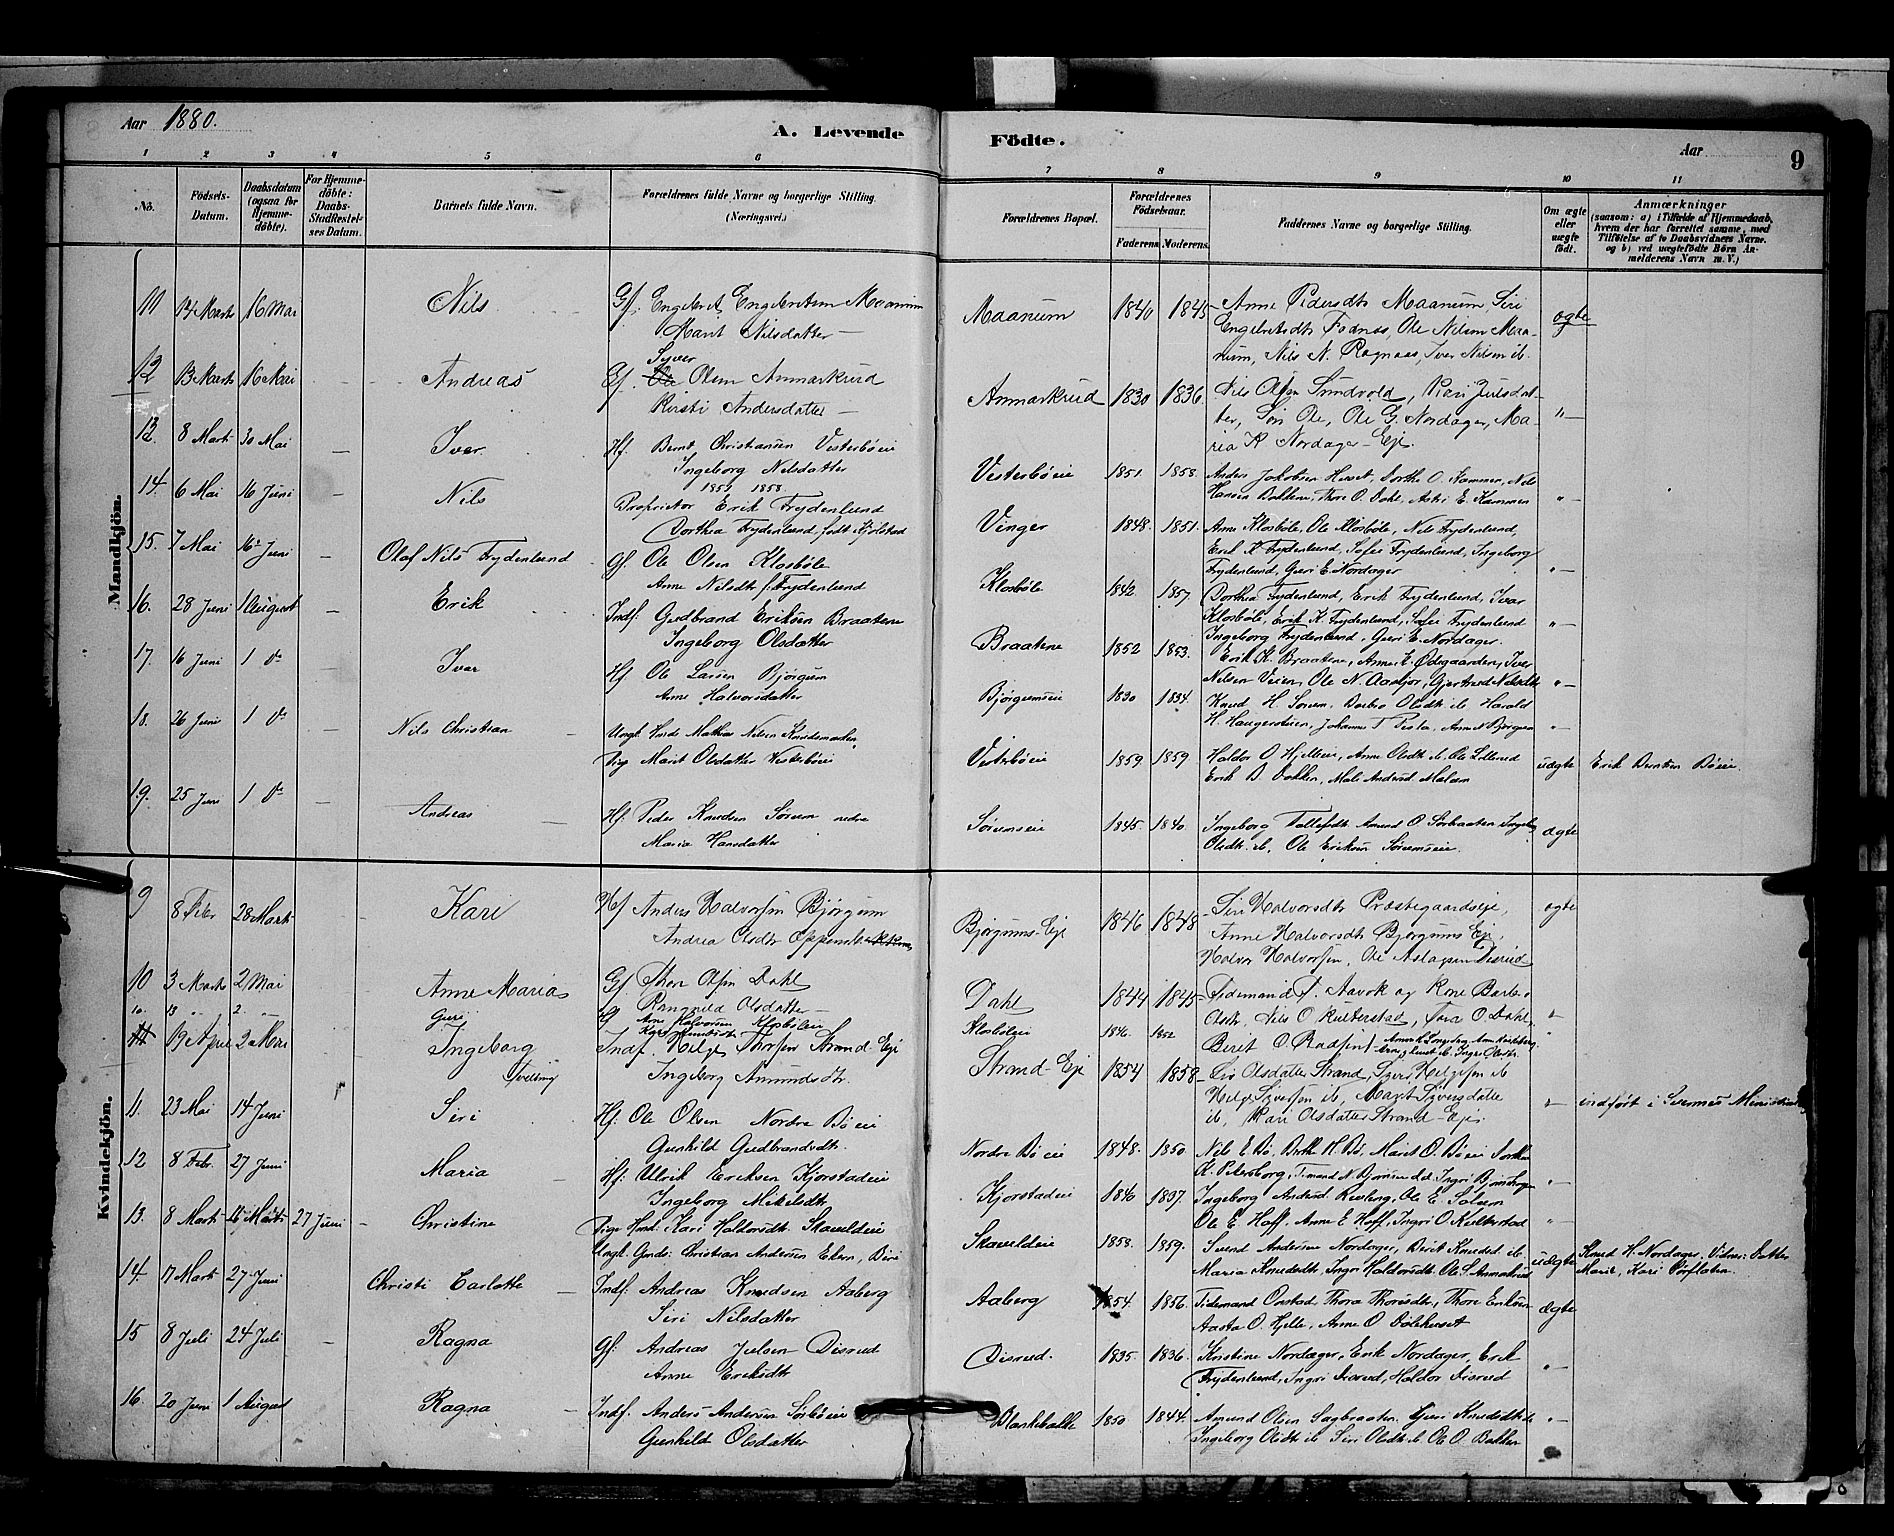 Aar 1880.
A. Levende
Födte.
Aar
9
1 2 3 4 5 6 7 8 9 10 11
No.
Födsels-Datum.
Daabsdatum (ogsaa for Hjemme-döbte).
For Hjemme-döbte: Daabs-Stadfæstel-ses Datum.
Barnets fulde Navn.
Forældrenes fulde Navne og borgerlige Stilling. (Næringsvei.)
Forældrenes Bopæl.
Forældrenes Födselsaar.
Faderens. Moderens.
Faddernes Navne og borgerlige Stilling.
Om ægte eller uægte födt.
Anmærkninger
(saasom: a) i Tilfælde af Hjemmedaab, hvem der har forrettet samme, med Tilföielse af to Daabsvidners Navne, og b) ved uægtefödte Börn An-melderens Navn m. V.)
Mandkjön.
11 14 Marts 16 Mai Nils Gf. Engebret Engebretsen Maanum
Marit Nilsdatter
Maanum 1840 1845 Anne Pedersdtr Maanum, Siri
Engebretsdtr Fodnes, Ole Nilsen Maa-
num, Nils N. Ragnaas, Iver Nilsen ib.
ægte
12 13 Marts 16 Mai Andreas Syver
Gf. Ole Olsen Anmarkrud
Kirsti Andersdatter
Anmarkrud 1830 1836 Nils Olsen Sundvold, Kari Julsdat-
ter, Siri Ole, Ole G. Nordager, Ma-
ria K Nordager-Eje.
13. 8 Marts 30 Mai Iver Hf. Bernt Christiansen Vesterbøeie
Ingeborg Nilsdatter
1851 1858
Vesterbøeie 1851. 1858. Anders Jakobsen, Dorthe O. Kammen, Nils
Hansen Bakken, Thore O. Dahl, Astri E. Kammen
14. 6 Mai 16 Juni Nils Proprietør Erik Frydenlund
Dorthea Frydenlund, født Kjølstad
Vinger 1848. 1851. Anne Klosbøle, Ole Klosbøle, Nils Frydenlund,
Erik K Frydenlund, Sofie Frydenlund, Ingeborg
Frydenlund, Guri E. Nordager
15. 7 Mai 16 Juni Olaf Nils Frydenlund Gf. Ole Olsen Klosbøle
Anne Nilsdtr f. Frydenlund
Klosbøle 1842. 1857. Dorthea Frydenlund, Erik Frydenlund, Ivar
Klosbøle, Erik K Frydenlund, Sofie Frydenlund
Ingeborg Frydenlund, Guri E. Nordager.
16. 28 Juni 1 August Erik Indf. Gudbrand Eriksen Braatene
Ingeborg Olsdatter
Braatene 1852 1853. Erik K. Braatene, Anne E. Ødegaarden, Iver
Nilsen Veien, Ole N. Aasljør, Gjertrud Nilsdtr
17. 16 Juni 1 do Iver Hf Ole Larsen Bjørgum
Anne Halvorsdatter
Bjørgumseie 1830 1834. Knud H. Sørum, Barbro Olsdtr ib. Harald
H. Haugerstuen, Johanne T. Anne N Bjørgum
18. 26 Juni 1 do Nils Christian Ungk. Mathias Nilsen Knudsmarken,
Pige Marit Olsdatter Vesterbøeie
Vesterbøeie 1859 1859 Haldor O Hjelleeie, Anne Olsdtr ib. Ole
Erik B Bakken,
uægte Erik Berntsen Bøeie.
19. 25 Juni 1 do Andreas Hf. Peder Knudsen Sørum nedre
Maria Hansdatter
Sørumseie 1845. 1840. Ingeborg Tollefsdtr Amund O. Sørbraaten Ingeborg
Olsdtr. ib. Ole Eriksen Sørumseie.
ægte
Kvindekjön.
9 8 Febr 28 Marts Kari Hf Anders Halvorsen Bjørgum
Andrea Olsdtr
Bjørgums-Eje 1846 1848 Siri Halvorsdtr Præstegaardseje,
Anne Halvorsdtr Bjørgums Eje,
Halvor Halvorsen, Ole Aslagsen Disrud
ægte
10 3 Marts 2 Mai Anne Maria Gf. Thore Olsen Dahl
Rangnild Olsdatter
Dahl 1844 1845 Tidemand T. Aavok og Kone Barbro
Olsdtr, Nils O Kulterstad, Thora O Dahl,
Berit O. Rudsent
10. 13 „ 2. „ Guri Gf Arne Halvorsen Klosbøleie
Kari Knudsdtr
Klosbøleie 1846. 1852
11 19 April 2 Mai Ingeborg Indf. Helge Thorsen Strand-Eje
Ingeborg Amundsdtr.
tvilling
Strand-Eje 1854 1858 Siri Olsdatter Strand, Syver Helgesen ib
Helge Syversen ib, Marit Syversdatter
ib, Kari Olsdatter Strand-Eje
11. 23 Mai 14 Juni Siri Hf. Ole Olsen Nordre Bøeie
Gunhild Gudbrandsdtr.
Nordre Bøeie 1848. 1850. Nils E Bø, Berthe H. Bø, Marit O. Bøeie
K. Petersborg, Ingri Bjørnshagen
indført i Ministerial
12 8 Febr. 27 Juni Maria Hf. Ulrik Eriksen Kjørstadeie
Ingeborg Mikelsdtr
Kjørstadeie 1846 1837. Ingeborg Andrud Ole E.
Ole E Hoff, Anne E Hoff, Ingri O Kulterstad
13. 8 Marts 15 Marts 27 Juni Christine Pige Kari Haldorsdtr Skaveldeie
Ungk. Christian Andersen Ekern, Biri
Skaveldeie 1858. 1859. Svend Andersen Nordager, Berit Knudsd. ib
Maria Knudsdtr, Ingri Haldorsdtr, Ole S. Anmarkrud
uægte Knud H. Nordager.
Marie, Kari
14. 17 Mart 27 Juni Christi Carlotte Indf. Andreas Knudsen Aaberg
Siri Nilsdatter
Aaberg 1854. 1856. Tidemand Onstad, Thora Thoresdtr, Thore Eriksen
Aasta O. Hjelle, Anne O
ægte
15 8 Juli 24 Juli Ragna Gf. Andreas Julsen Disrud
Anne Eriksdtr
Disrud. 1835. 1836. Kristine Nordager, Erik Nordager, Erik
Frydenlund, Ingri Disrud, Haldor Disrud
16. 20 Juni 1 August Ragna Indf. Anders Andersen Sørbøeie
Gunhild Olsdatter
Blankebakke 1850 1844. Amund Olsen Sagbraaten, Guri Knudsdtr ib
Ingeborg Olsdtr ib Siri Olsdtr ib. Ole O. Bakken